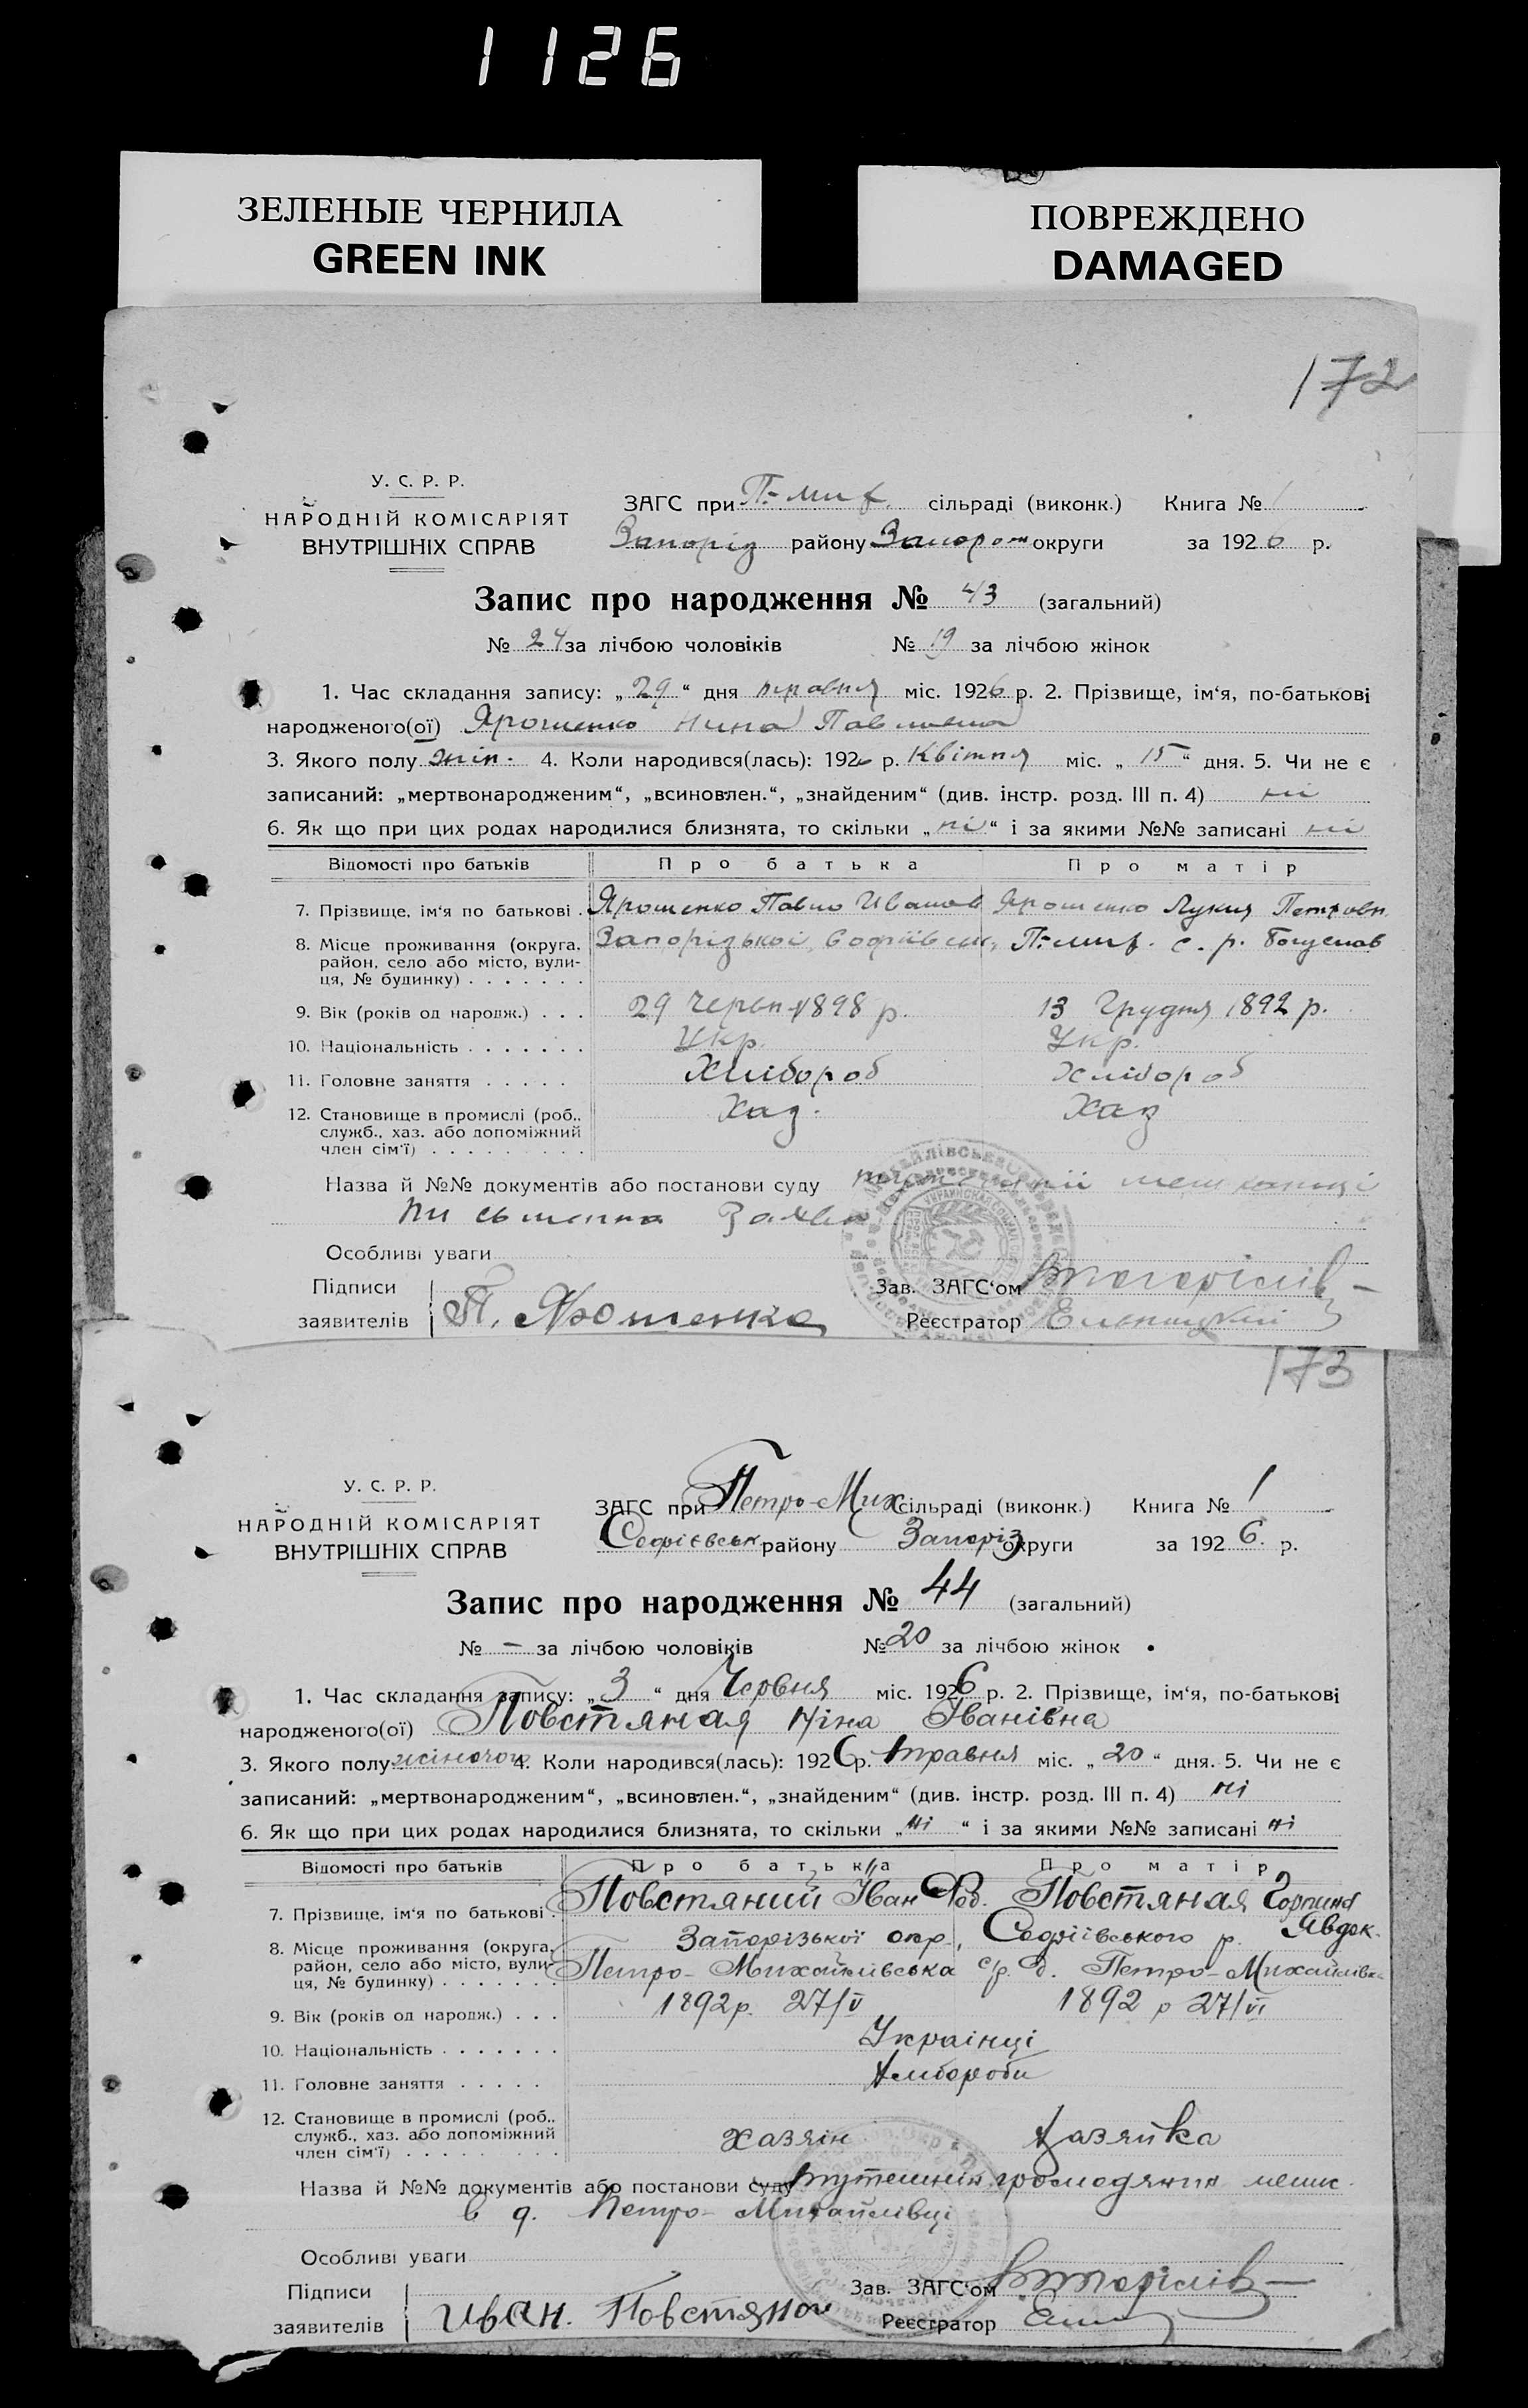 1126
ЗЕЛЕНЫЕ ЧЕРНИЛА
GREEN INK
ПОВРЕЖДЕНО
DAMAGED
172
У. С. Р. Р.
НАРОДНІЙ КОМІСАРІЯТ
ВНУТРІШНІХ СПРАВ
ЗАГС при П.-Мих. сільраді (виконк.) Книга № 1
Запоріз району Запорож округи за 1926 р.
Запис про народження № 43 (загальний)
№ 24 за лічбою чоловіків № 19 за лічбою жінок
1. Час складання запису: „29“ дня травня міс. 1926 р. 2. Прізвище, ім‘я, по-батькові
народженого(ої) Ярошенко Нина Павловна
3. Якого полу жін. 4. Коли народився(лась): 1926 р. Квітня міс. „15“ дня. 5. Чи не є
записаний: „мертвонародженим“, „всиновлен.“, „знайденим“ (див. інстр. розд. III п. 4) ні
6. Як що при цих родах народилися близнята, то скільки „ні“ і за якими №№ записані ні
Відомості про батьків Про батька Про матір
7. Прізвище, ім‘я по батькові . Ярошенко Павло Иванов Ярошенко Лукия Петровн.
8. Місце проживання (округа, Запорізької, Софіївськ, П.-Мих. с. р. Богуслав
район, село або місто, вули-
ця, № будинку) . . . . . . .
9. Вік (років од народж.) . . . 29 Червн 1898 р. 13 Грудня 1892 р.
10. Національність . . . . . . . Укр. Укр.
11. Головне заняття . . . . . Хлібороб Хлібороб
12. Становище в промислі (роб., Хаз. Хаз
служб., хаз. або допоміжний
член сім‘ї) . . . . . . . . .
Назва й №№ документів або постанови суду мешканці
Письменна Заява
Особливі уваги
Підписи Зав. ЗАГС‘ом
заявителів П. Ярошенко Реєстратор
173
У. С. Р. Р.
НАРОДНІЙ КОМІСАРІЯТ
ВНУТРІШНІХ СПРАВ
ЗАГС при Петро-Мих сільраді (виконк.) Книга № 1
Софієвськ району Запоріз округи за 1926. р.
Запис про народження № 44 (загальний)
№ – за лічбою чоловіків № 20 за лічбою жінок
1. Час складання запису: „3“ дня Червня міс. 1926 р. 2. Прізвище, ім‘я, по-батькові
народженого(ої) Повстяная Ніна Іванівна
3. Якого полу жіночого 4. Коли народився(лась): 1926 р. травня міс. „20“ дня. 5. Чи не є
записаний: „мертвонародженим“, „всиновлен.“, „знайденим“ (див. інстр. розд. III п. 4) ні
6. Як що при цих родах народилися близнята, то скільки „ні“ і за якими №№ записані ні
Відомості про батьків Про батька Про матір
7. Прізвище, ім‘я по батькові . Повстяний Іван Фед. Повстяная Горпина Явдок.
8. Місце проживання (округа, Запорізької окр., Софіївського р.
район, село або місто, вули- Петро-Михайлівська с/р. д. Петро-Михайлівка
ця, № будинку) . . . . . . .
9. Вік (років од народж.) . . . 1892р. 27/V 1892 р 27/VI
10. Національність . . . . . . . Українці
11. Головне заняття . . . . . Хлібороби
12. Становище в промислі (роб., хазяін хазяйка
служб., хаз. або допоміжний
член сім‘ї) . . . . . . . . .
Назва й №№ документів або постанови суду тутешній громодянин мешк.
в д. Петро-Михайлівці
Особливі уваги
Підписи Зав. ЗАГС‘ом
заявителів Иван. Повстяной Реєстратор